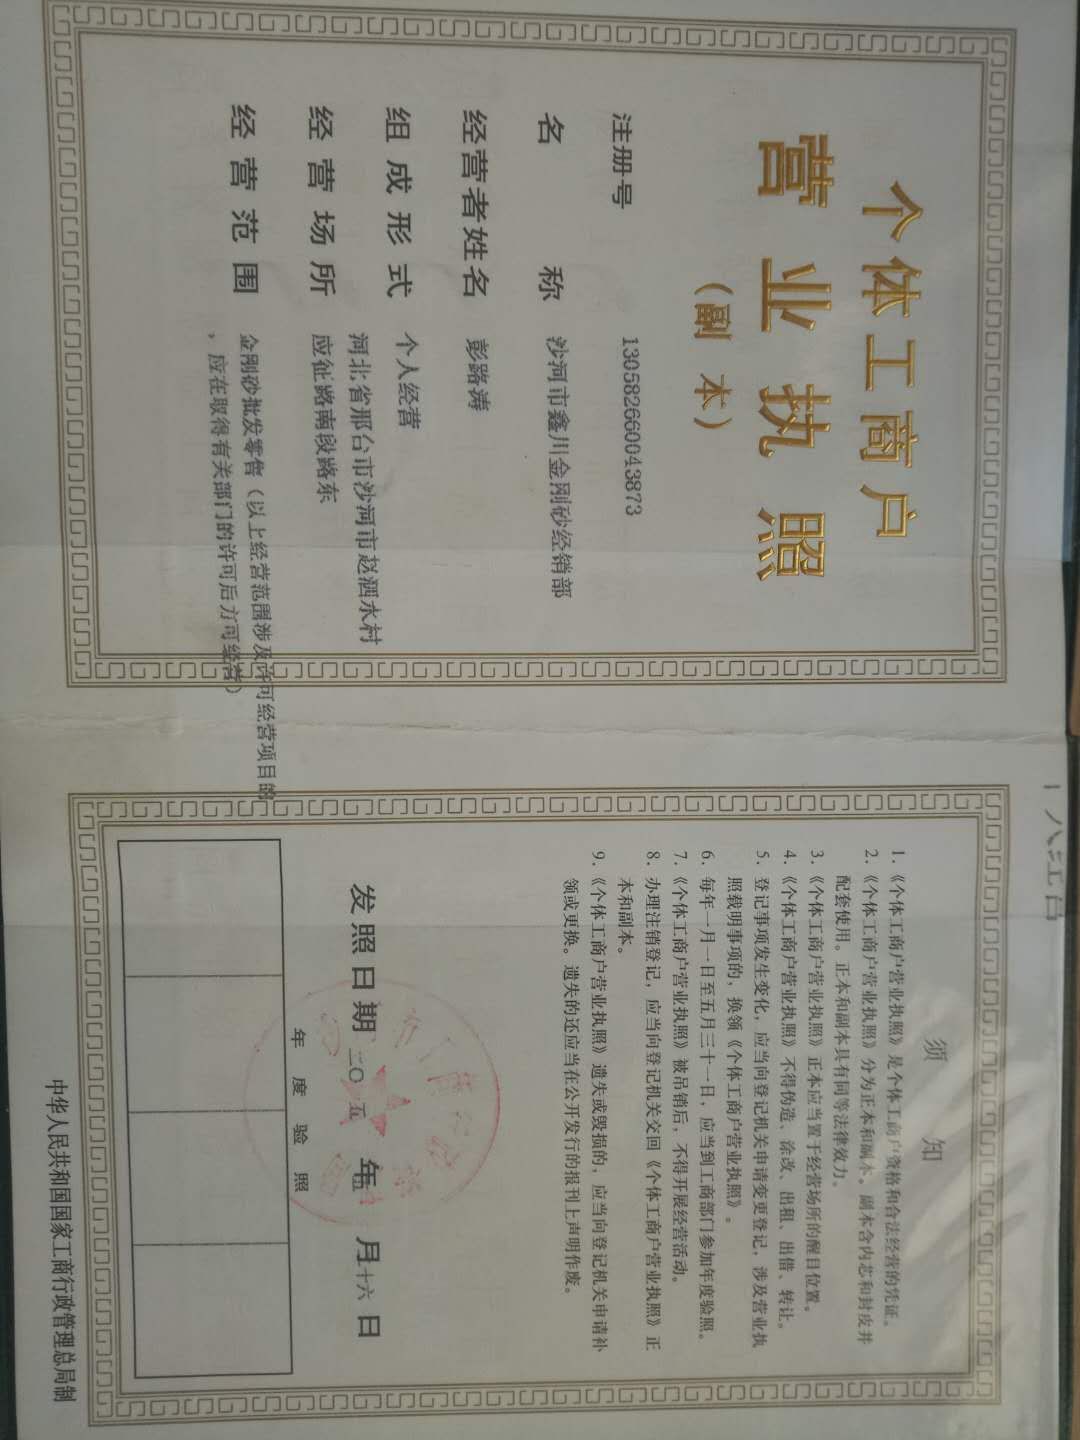 个体工商户
营业执照
（副本）
注册号 130582660043873
名称 沙河市鑫川金刚砂经销部
经营者姓名 彭路涛
组成形式 个人经营
经营场所 河北省邢台市沙河市赵泗水村
应征路南段路东
经营范围 金刚砂批发零售（以上经营范围涉及许可经营项目的
，应在取得有关部门的许可后方可经营）
须知
1．《个体工商户营业执照》是个体工商户资格和合法经营的凭证。
2．《个体工商户营业执照》分为正本和副本。副本含内芯和封皮并
配套使用。正本和副本具有同等法律效力。
3．《个体工商户营业执照》正本应当置于经营场所的醒目位置。
4．《个体工商户营业执照》不得伪造、涂改、出租、出借、转让。
5．登记事项发生变化，应当向登记机关申请变更登记，涉及营业执
照载明事项的，换领《个体工商户营业执照》。
6．每年一月一日至五月三十一日，应当到工商部门参加年度验照。
7．《个体工商户营业执照》被吊销后，不得开展经营活动。
8．办理注销登记，应当向登记机关交回《个体工商户营业执照》正
本和副本。
9．《个体工商户营业执照》遗失或毁损的，应当向登记机关申请补
领或更换。遗失的还应当在公开发行的报刊上声明作废。
发照日期 二〇 五 年 月十六日
年度验照
中华人民共和国国家工商行政管理总局制